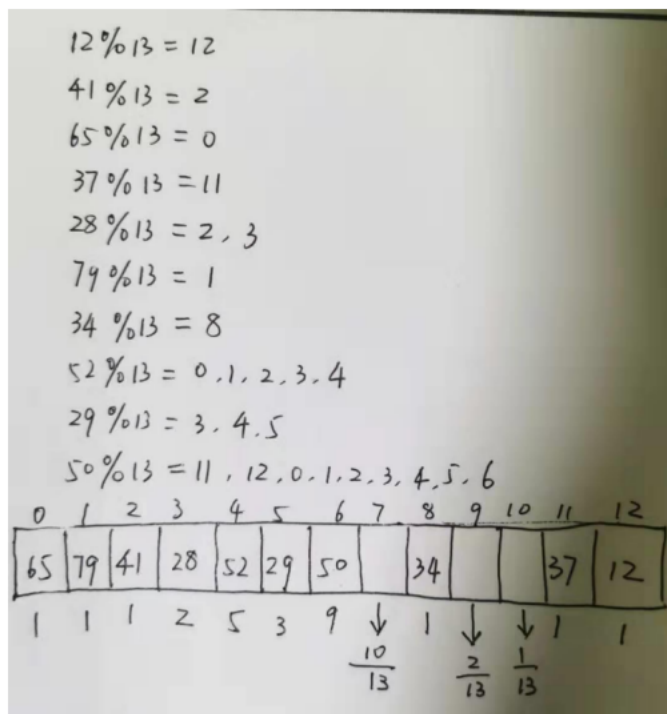 12%13 = 12
41%13 = 2
65%13 = 0
37%13 = 11
28%13 = 2, 3
79%13 = 1
34%13 = 8
52%13 = 0.1.2.3.4
29%13 = 3.4.5
50%13 = 11, 12, 0.1.2.3.4.5.6
0 1 2 3 4 5 6 7 8 9 10 11 12
65 79 41 28 52 29 50 34 37 12
1 1 1 2 5 3 9 ↓ 1 ↓ ↓ 1 1
10/13 2/13 1/13